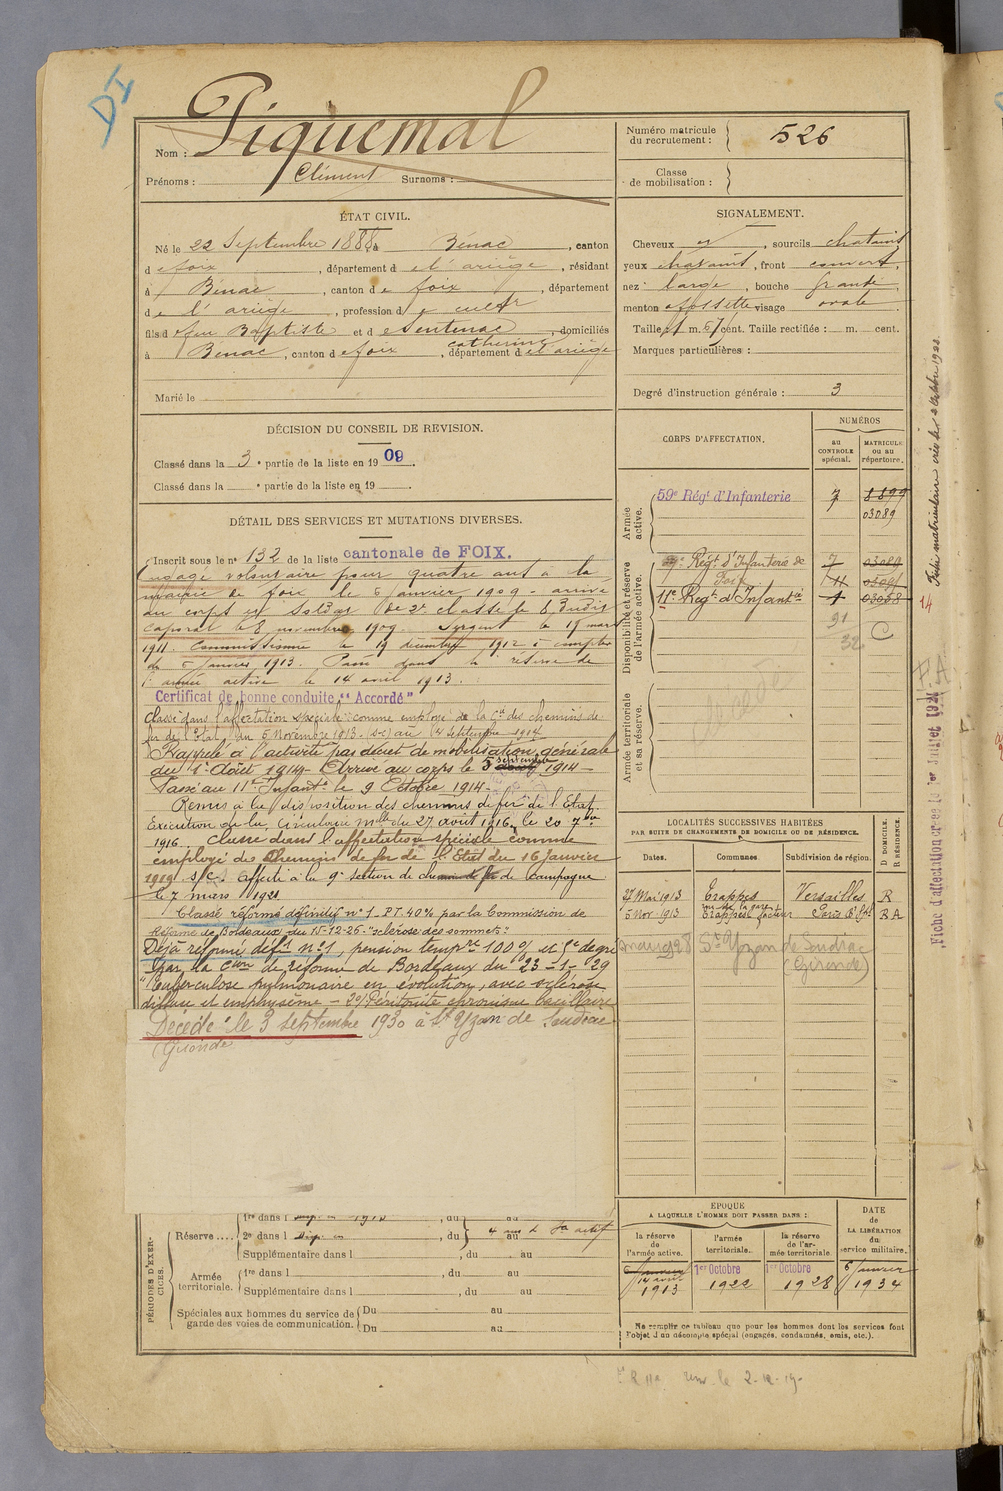 DI
Nom : Piquemal
Prénoms : Clément Surnoms :
Numéro matricule du recrutement : 526
Classe de mobilisation :
ÉTAT CIVIL.
Né le 22 Septembre 1888 à Bénac, canton
de foix, département de l'ariège, résidant
à Bénac, canton de foix, département
de l'ariège, profession de cultr
fils de feu Baptiste et de Sentenac catherine, domiciliés
à Benac, canton de foix, département de l'ariège
Marié le
DÉCISION DU CONSEIL DE REVISION.
Classé dans la 3e partie de la liste en 1909.
Classé dans la e partie de la liste en 19 .
DÉTAIL DES SERVICES ET MUTATIONS DIVERSES.
Inscrit sous le n° 132 de la liste cantonale de FOIX.
Engagé volontaire pour quatre ans à la
mairie de foix le 5 janvier 1909 - arrivé
au corps et soldat de 2e classe le 8 Judit
caporal le 8 novembre 1909. Sergent le 17 mars
1911. Commissionné le 19 décembre 1912 à compter
du 5 janvier 1913. Passé dans la réserve de
l'armée active le 14 avril 1913.
Certificat de bonne conduite "Accordé"
Classé dans l'affectation spéciale comme employé de la Cie des chemins de
fer de l'Etat, du 5 Novembre 1913 (sc) au 4 septembre 1914
Rappelé à l'activité par décret de mobilisation générale
du 1er Août 1914. Arrivé au corps le 5 septembre 1914 -
Passé au 11e Infant. le 9 Octobre 1914 -
Remis à la disposition des chemins de fer de l'Etat.
Exécution de la Circulaire mlle du 27 août 1916, le 20 7bre
1916. Classé dans l'affectation spéciale comme
employé des Chemins de fer de l'Etat du 16 Janvier
1919 s/c. Affecté à la 9e section de chemin de fer de campagne
le 7 mars 1921
Classé réformé définitif n° 1 - PT 40% par la Commission de
Réforme de Bordeaux du 15-12-26 - "sclérose des sommets"
Déjà réformé défif n° 1, pension tempre 100% et 1e degré
par la Con de réforme de Bordeaux du 23-1-29
"tuberculose pulmonaire en évolution, avec sclérose
diffuse et emphysème - 2°) Péritonite chronique bacillaire
Décédé le 3 septembre 1930 à St Yzan de Soudiac
(Gironde
SIGNALEMENT.
Cheveux et, sourcils chatains
yeux chatains, front couvert,
nez large, bouche grande,
menton a fossette visage ovale.
Taille 1 m. 67 cent. Taille rectifiée : m. cent.
Marques particulières :
Degré d'instruction générale : 3
CORPS D'AFFECTATION.
NUMÉROS
au CONTROLE spécial.
MATRICULE ou au répertoire.
Armée active.
59e Régt d'Infanterie 7 8899
03089
Disponibilité et réserve de l'armée active.
Régt d'Infanterie de Foix 7 03089
11e Regt d'Infantie 03058
91
32 C
Armée territoriale et sa réserve.
décédé
LOCALITÉS SUCCESSIVES HABITÉES
PAR SUITE DE CHANGEMENTS DE DOMICILE OU DE RÉSIDENCE.
Dates. Communes. Subdivision de région. D DOMICILE. R RÉSIDENCE.
27 Mai 1913 Trappes Versailles R
5 Nov. 1913 Trappes facteur rue de la gare RA
1928 St Yzan de Soudiac
(Gironde)
PÉRIODES D'EXERCICES.
Réserve .... 1re dans l , du au
2e dans l , du au
Supplémentaire dans l , du au
Armée territoriale. 1re dans l , du au
Supplémentaire dans l , du au
Spéciales aux hommes du service de garde des voies de communication. Du au
Du au
ÉPOQUE
A LAQUELLE L'HOMME DOIT PASSER DANS :
la réserve de l'armée active. l'armée territoriale. la réserve de l'armée territoriale.
DATE de LA LIBÉRATION du service militaire.
14 avril 1913 1er Octobre 1922 1er Octobre 1928 5 Janvier 1934
Ne remplir ce tableau que pour les hommes dont les services font
l'objet d'un décompte spécial (engagés, condamnés, omis, etc.).
Fiche matriculaire créée le 2 Octobre 1923.
14
Fiche d'affectation créée le 1er Juillet 1921.